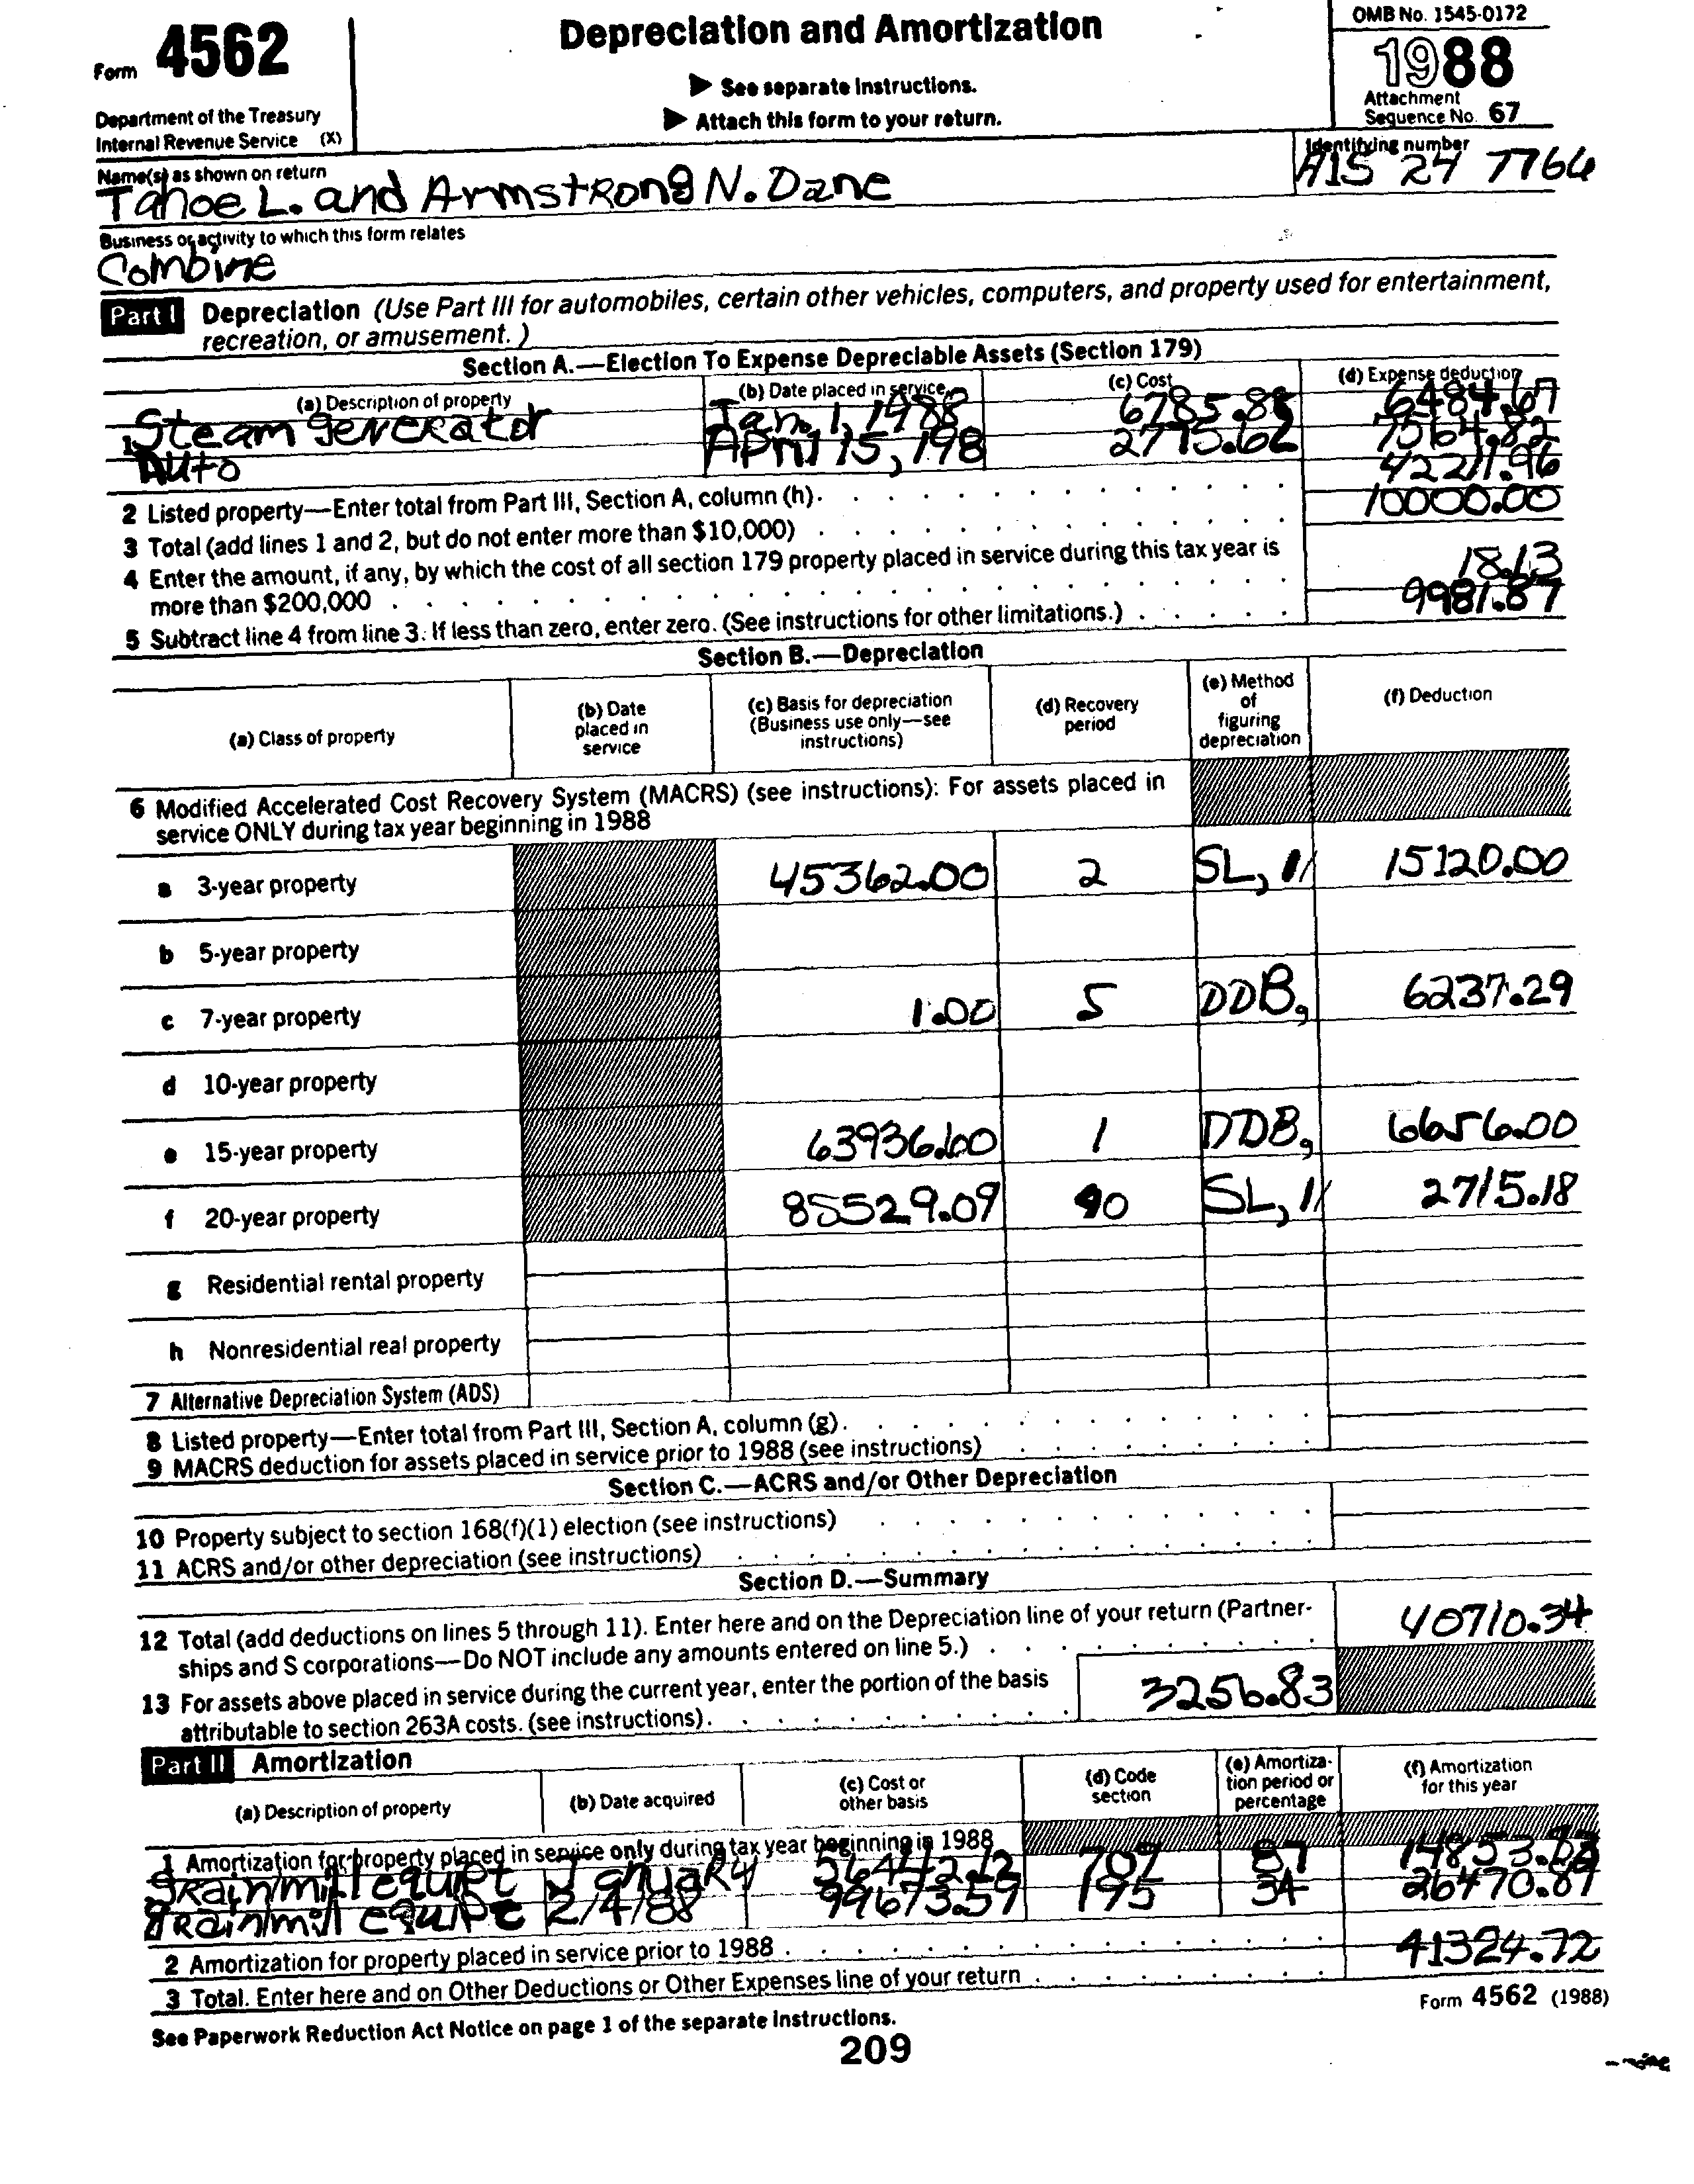 Form 4562
Depreciation and Amortization
OMB No. 1545-0172
1988
▶ See separate Instructions.
▶ Attach this form to your return.
Department of the Treasury
Internal Revenue Service (X)
Attachment
Sequence No. 67
Name(s) as shown on return
Identifying number
Tahoe L. and Armstrong N. Dane
24 7766
Business or activity to which this form relates
Combine
Part I Depreciation (Use Part III for automobiles, certain other vehicles, computers, and property used for entertainment,
recreation, or amusement.)
Section A.—Election To Expense Depreciable Assets (Section 179)
(a) Description of property (b) Date placed in service (c) Cost (d) Expense deduction
1 Steam generator Jan. 1, 1988 6785.88 6484.67
Auto April 15, 198 2715.62 7564.82
2 Listed property—Enter total from Part III, Section A, column (h). 42211.96
3 Total (add lines 1 and 2, but do not enter more than $10,000) 10000.00
4 Enter the amount, if any, by which the cost of all section 179 property placed in service during this tax year is
more than $200,000 18.13
5 Subtract line 4 from line 3. If less than zero, enter zero. (See instructions for other limitations.) 9981.87
Section B.—Depreciation
(a) Class of property
(b) Date placed in service
(c) Basis for depreciation (Business use only—see instructions)
(d) Recovery period
(e) Method of figuring depreciation
(f) Deduction
6 Modified Accelerated Cost Recovery System (MACRS) (see instructions): For assets placed in
service ONLY during tax year beginning in 1988
a 3-year property 45362.00 2 SL, 15120.00
b 5-year property
c 7-year property 1.00 5 DDB, 6237.29
d 10-year property
e 15-year property 63936.60 1 DDB, 6656.00
f 20-year property 85529.09 40 SL, 2715.18
g Residential rental property
h Nonresidential real property
7 Alternative Depreciation System (ADS)
8 Listed property—Enter total from Part III, Section A, column (g).
9 MACRS deduction for assets placed in service prior to 1988 (see instructions)
Section C.—ACRS and/or Other Depreciation
10 Property subject to section 168(f)(1) election (see instructions)
11 ACRS and/or other depreciation (see instructions)
Section D.—Summary
12 Total (add deductions on lines 5 through 11). Enter here and on the Depreciation line of your return (Partner-
ships and S corporations—Do NOT include any amounts entered on line 5.) 40710.34
13 For assets above placed in service during the current year, enter the portion of the basis
attributable to section 263A costs. (see instructions). 3256.83
Part II Amortization
(a) Description of property
(b) Date acquired
(c) Cost or other basis
(d) Code section
(e) Amortiza-tion period or percentage
(f) Amortization for this year
1 Amortization for property placed in service only during tax year beginning in 1988
Grain/mill equipt January 56442.12 709 87
Grain/mill equipt 2/4/88 99673.59 195 34
2 Amortization for property placed in service prior to 1988
3 Total. Enter here and on Other Deductions or Other Expenses line of your return 41324.72
See Paperwork Reduction Act Notice on page 1 of the separate Instructions.
Form 4562 (1988)
209